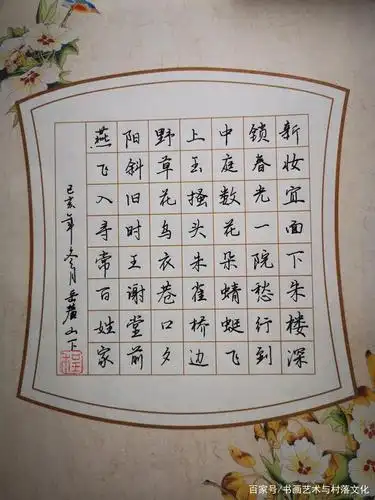 新妆宜面下朱楼深
锁春光一院愁行到
中庭数花朵蜻蜓飞
上玉搔头朱雀桥边
野草花乌衣巷口夕
阳斜旧时王谢堂前
燕飞入寻常百姓家
己亥年冬月岳麓山下
百家号/书画艺术与村落文化